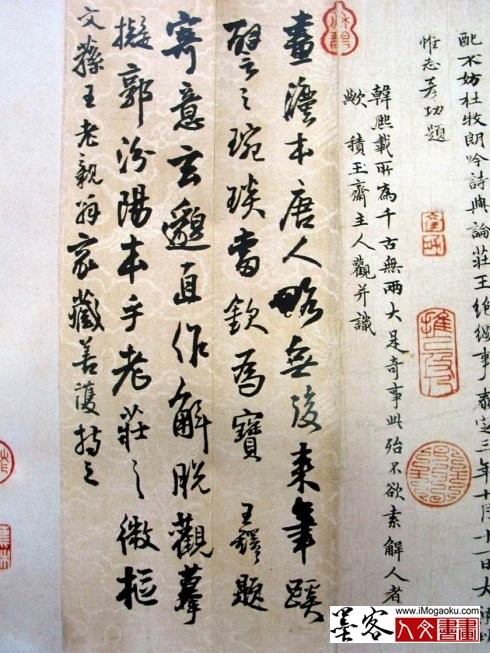 配不妨杜牧朗吟詩典論莊王絕纓事泰定三年十月十一日大
惟志彥功題
韓熙載所為千古無兩大是奇事此殆不欲素解人者
歟 積玉齋主人觀并識
畫灋本唐人略無後來筆蹊
譬之琬琰當欽為寶 王鐸題
寄意玄邈直作解脫觀摹
擬郭汾陽本乎老莊之微樞
文蓀王老親翁家藏善護持之
墨客
www.iMogaoku.com
人文書畫